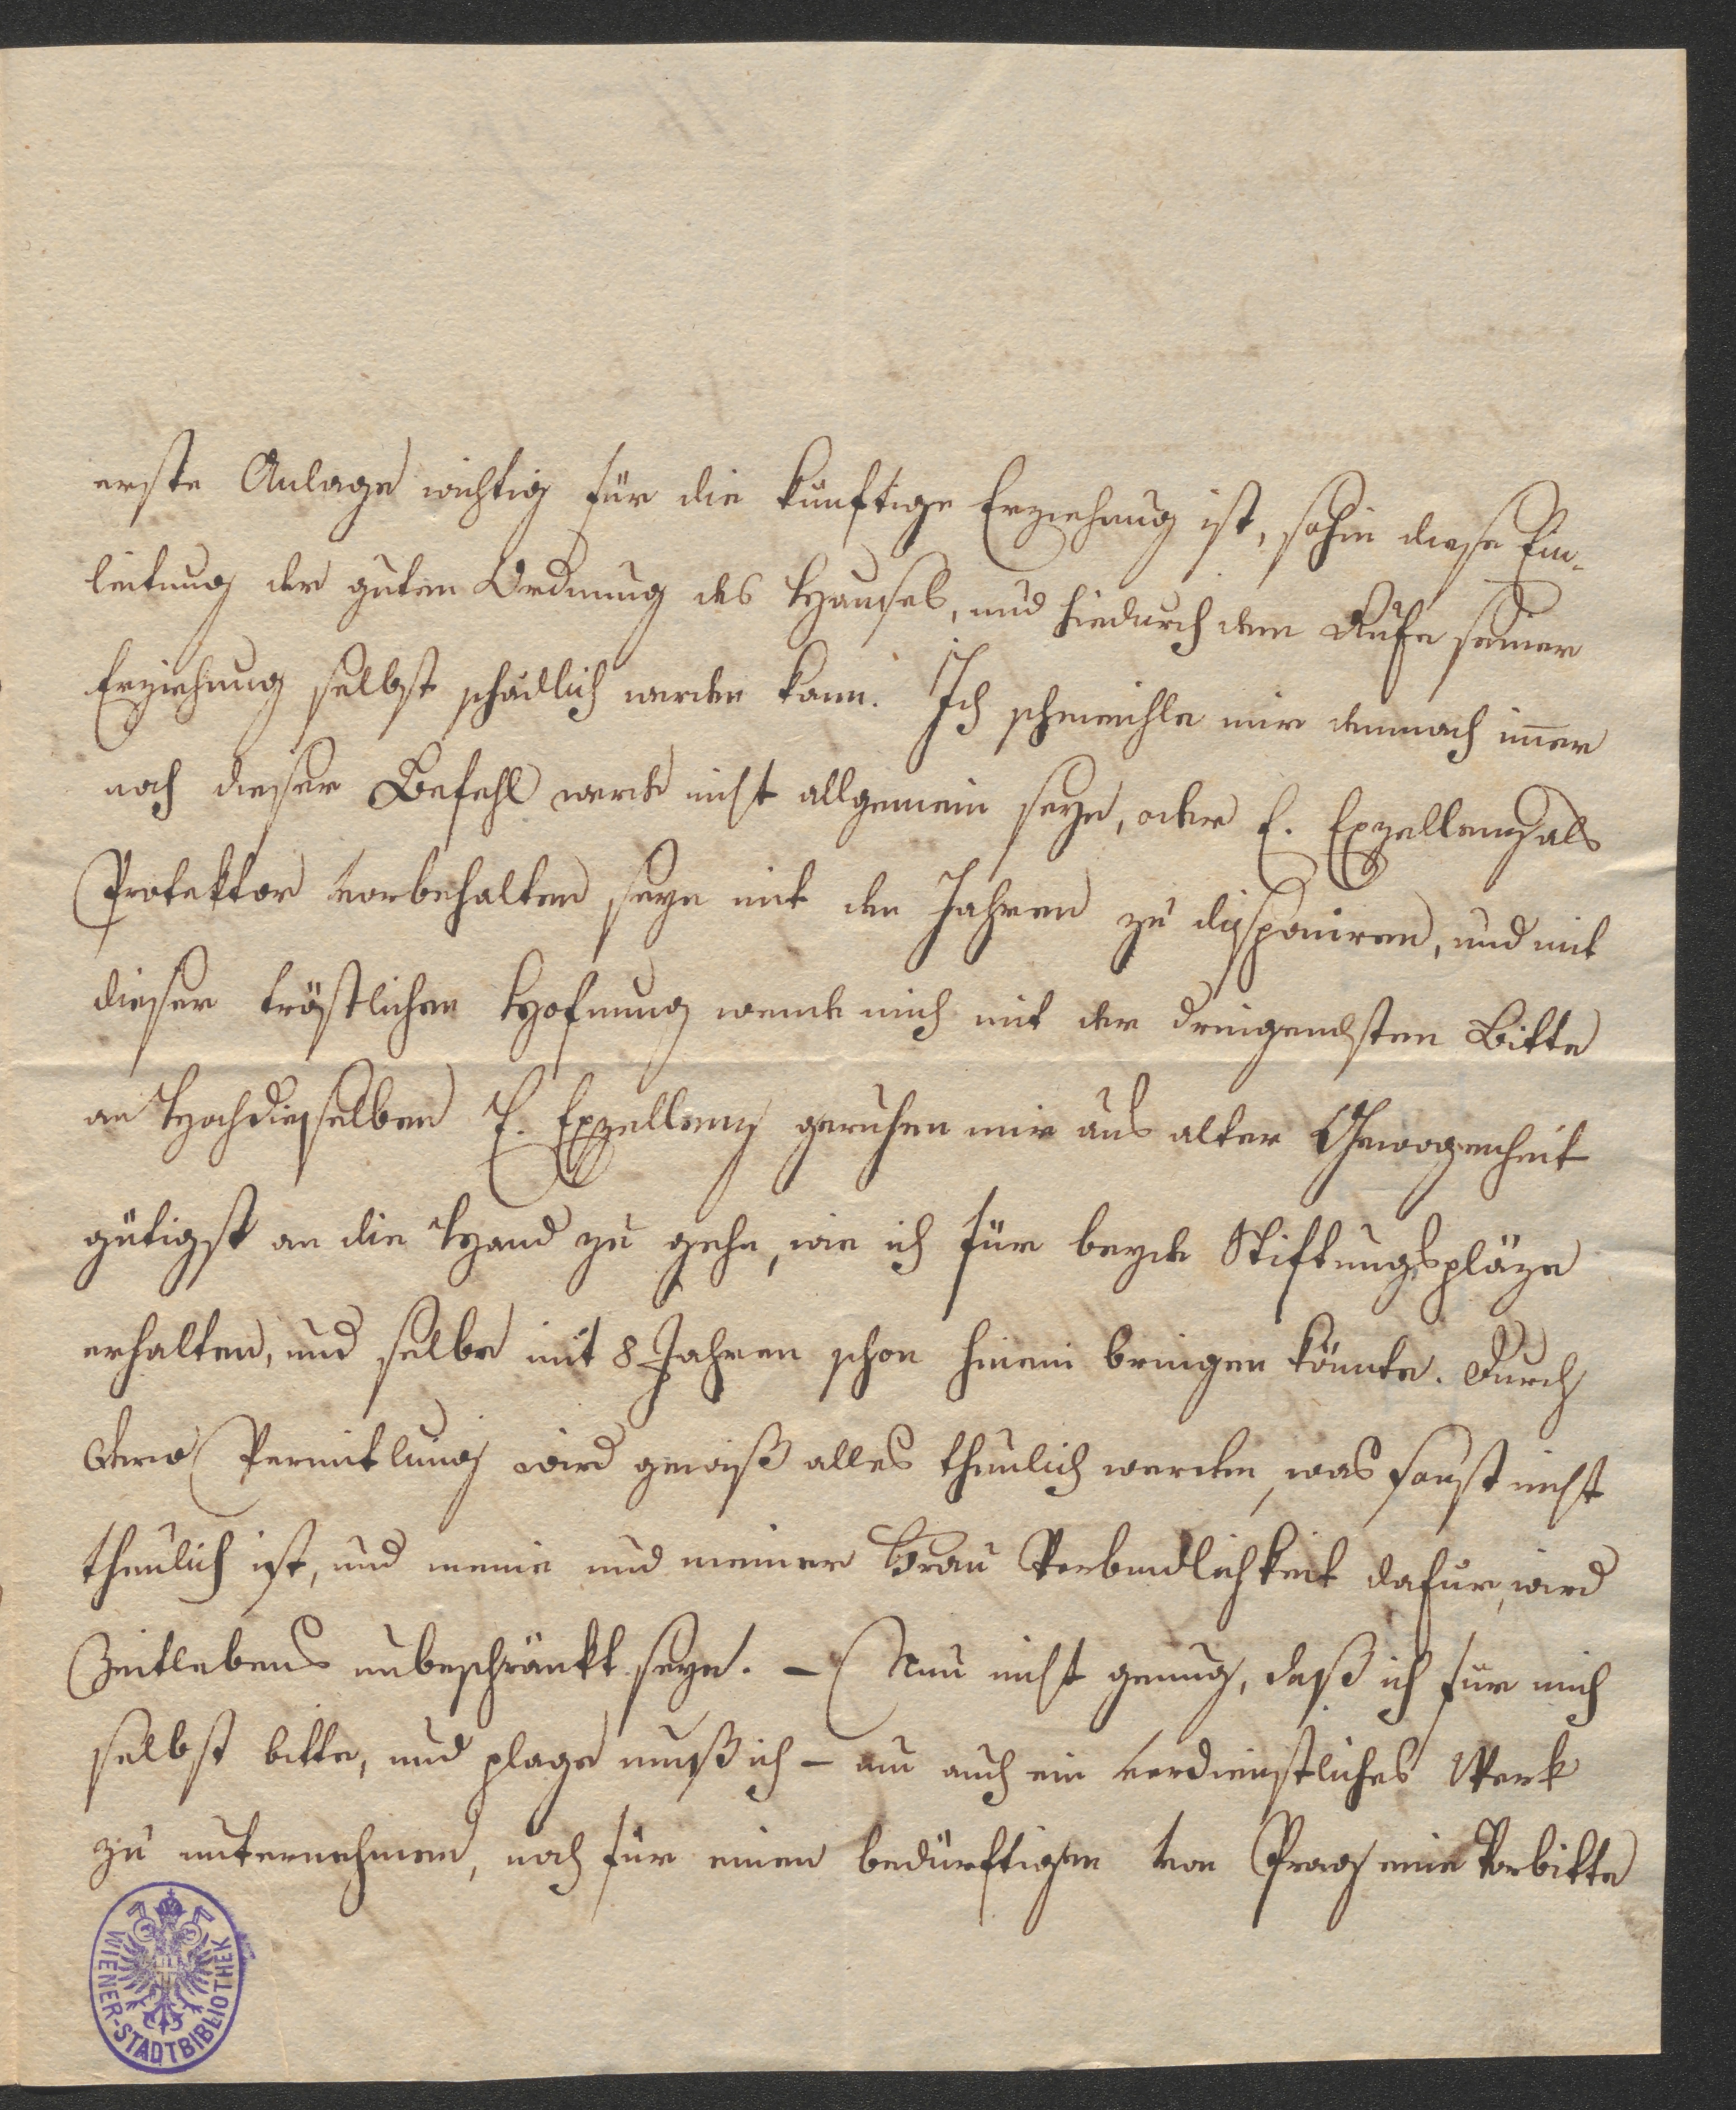 erste Anlage wichtig für die künftige Erziehung ist, sohin diese Ein-
leitung der guten Ordnung des Hauses, und hiedurch dem Rufe seiner
Erziehung selbst schädlich werden kann. Ich schmeichle mir demnach im̅er
noch dieser Befehl werde nicht allgemein seyn, oder E. Exzellenz als
Protektor vorbehalten seye mit den Jahren zu disponiren, und mit
dieser tröstlichen Hofnung wende mich mit der dringendsten Bitte
an Hochdieselben E. Exzellenz geruhen mir aus alter Gewogenheit
gütigst an die Hand zu gehn, wie ich für beyde Stiftungspläze
erhalten, und selbe mit 8 Jahren schon hinein bringen könnte. Durch
dero Vermitlung wird gewiß alles thunlich werden, was sonst nicht
thunlich ist, und meine und meiner Frau Verbindlichkeit dafür, wird
Zeitlebens unbeschränkt seyn. – Nun nicht genug, daß ich für mich
selbst bitte, und plage muß ich – um auch ein verdienstliches Werk
zu unternehmen, noch für einen bedürftigen von Prag eine Vorbitte
WIENER-STADTBIBLIOTHEK